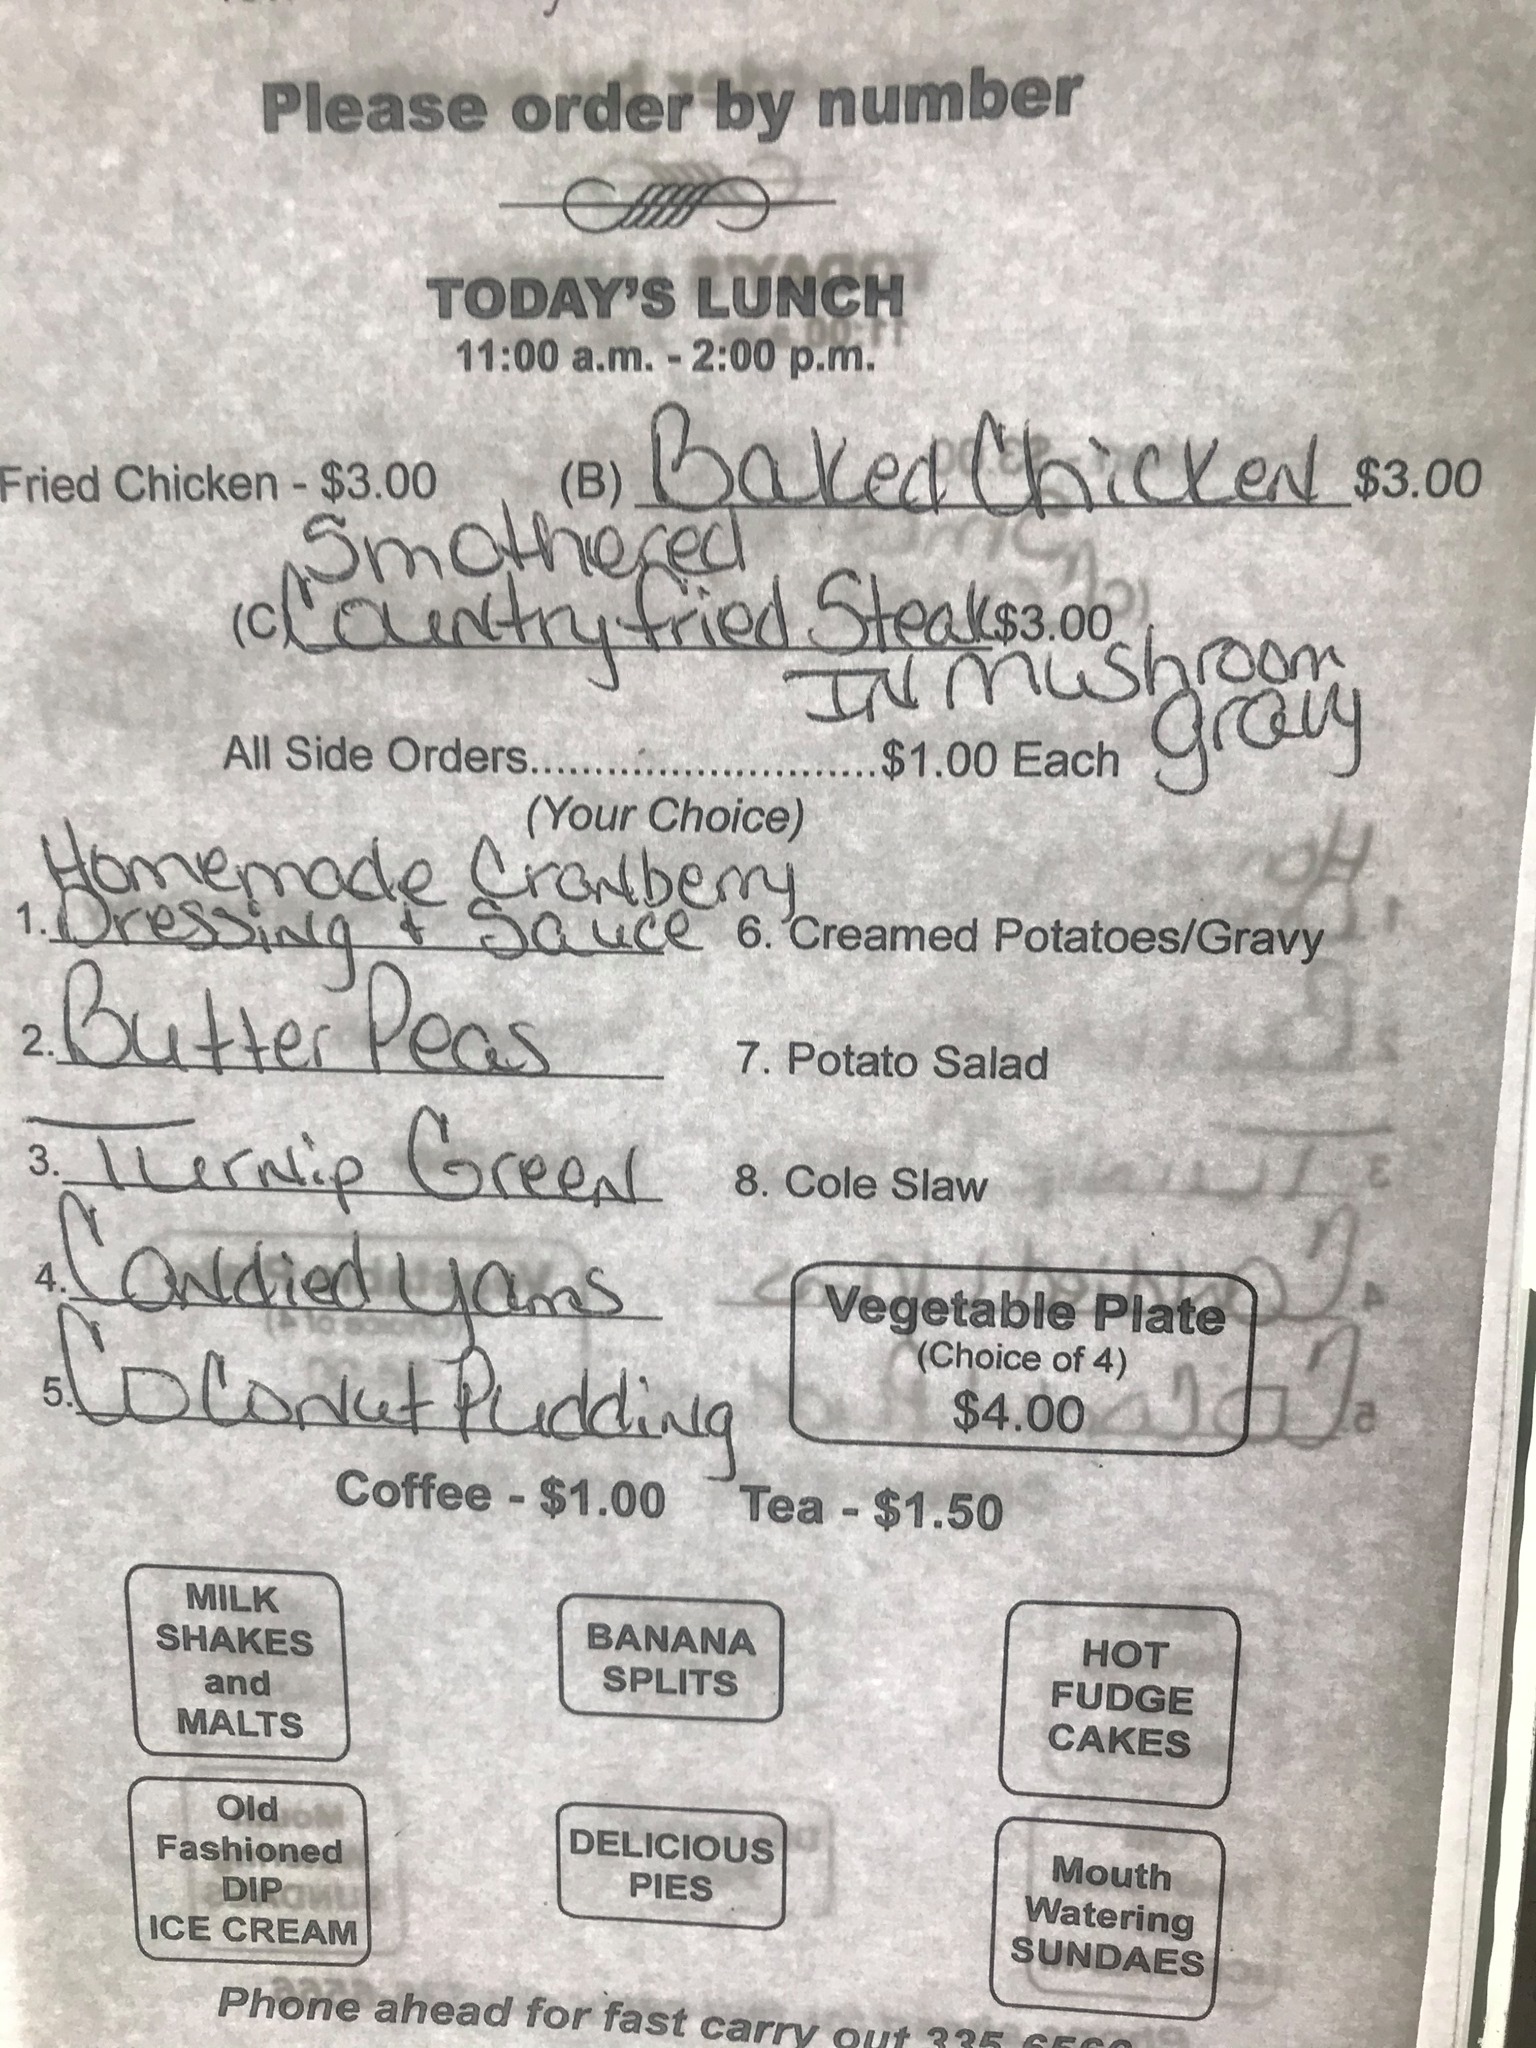 Please order by number
TODAY'S LUNCH
11:00 a.m. - 2:00 p.m.
Fried Chicken - $3.00 (B) Baked Chicken $3.00
Smothered
(C) Country fried Steak $3.00
IN Mushroom
gravy
All Side Orders...........................$1.00 Each
(Your Choice)
Homemade Cranberry
1. Dressing + Sauce 6. Creamed Potatoes/Gravy
2. Butter Peas 7. Potato Salad
3. Turnip Green 8. Cole Slaw
4. Candied Yams
5. Coconut Pudding
Vegetable Plate
(Choice of 4)
$4.00
Coffee - $1.00 Tea - $1.50
MILK
SHAKES
and
MALTS
BANANA
SPLITS
HOT
FUDGE
CAKES
Old
Fashioned
DIP
ICE CREAM
DELICIOUS
PIES
Mouth
Watering
SUNDAES
Phone ahead for fast carry out 335